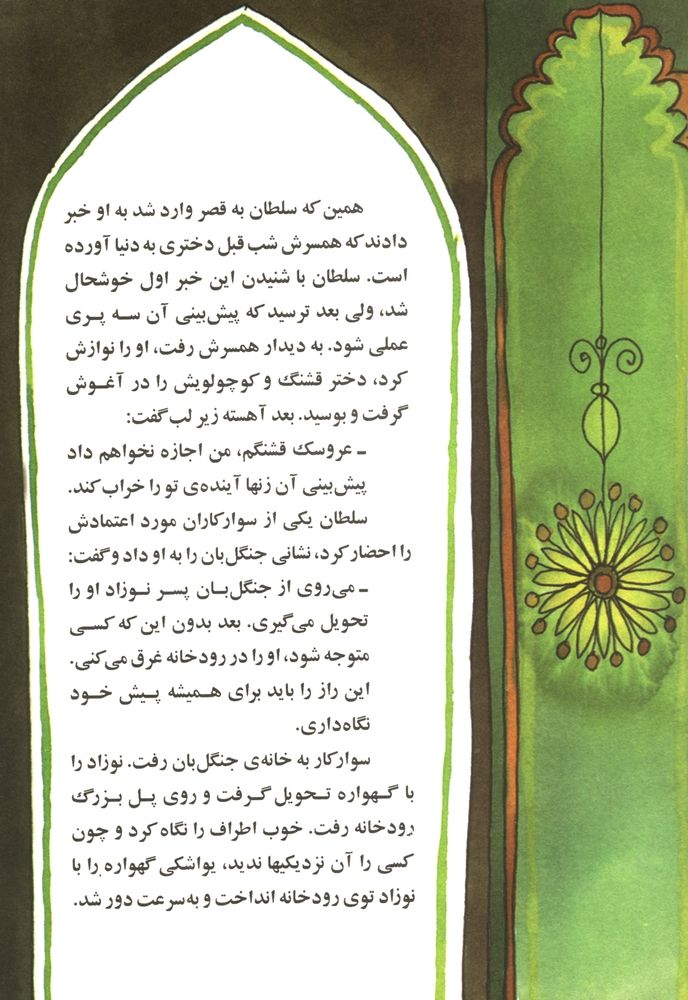 همین که سلطان به قصر وارد شد به او خبر
دادند که همسرش شب قبل دختری به دنیا آورده
است. سلطان با شنیدن این خبر اول خوشحال
شد، ولی بعد ترسید که پیش‌بینی آن سه پری
عملی شود. به دیدار همسرش رفت، او را نوازش
کرد، دختر قشنگ و کوچولویش را در آغوش
گرفت و بوسید. بعد آهسته زیر لب گفت:
ـ عروسک قشنگم، من اجازه نخواهم داد
پیش‌بینی آن زنها آینده‌ی تو را خراب کند.
سلطان یکی از سوارکاران مورد اعتمادش
را احضار کرد، نشانی جنگل‌بان را به او داد و گفت:
ـ می‌روی از جنگل‌بان پسر نوزاد او را
تحویل می‌گیری. بعد بدون این که کسی
متوجه شود، او را در رودخانه غرق می‌کنی.
این راز را باید برای همیشه پیش خود
نگاه‌داری.
سوارکار به خانه‌ی جنگل‌بان رفت. نوزاد را
با گهواره تحویل گرفت و روی پل بزرگ
رودخانه رفت. خوب اطراف را نگاه کرد و چون
کسی را آن نزدیکیها ندید، یواشکی گهواره را با
نوزاد توی رودخانه انداخت و به‌سرعت دور شد.